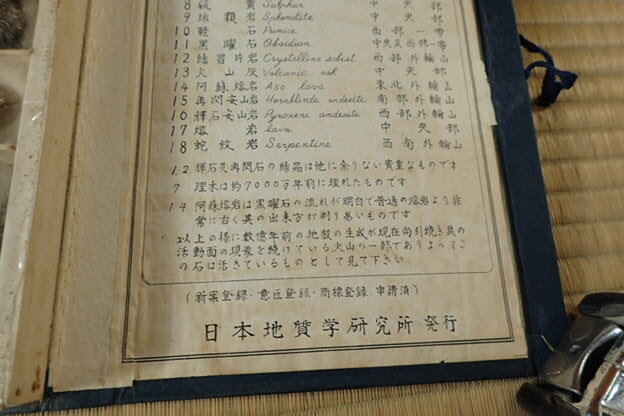 8 硫黄 Sulphur 中央部
9 球顆岩 Spherulite 中央部
10 軽石 Pumice 西部一帯
11 黒曜石 Obsidian 中央及西部一帯
12 結晶片岩 Crystalline schist 西部外輪山
13 火山灰 Volcanic ash 中央部
14 阿蘇熔岩 Aso lava 東北外輪山
15 再閃安山岩 Hornblende andesite 南部外輪山
16 輝石安山岩 Pyroxene andesite 西部外輪山
17 熔岩 lava 中央部
18 蛇紋岩 Serpentine 西南外輪山
1.2 輝石及再閃石の結晶は他に余りない貴重なものです
7 埋木は約7000万年前に埋れたものです
14 阿蘇熔岩は黒曜石の流れが明白で普通の熔岩より非
常に古く其の出来方が判り易いものです
以上の様に数億年前の地殻の生成が現在尚引続き其の
活動面の現象を続けている火山の一部でありよってこ
の石は活きているものとして見て下さい
(新案登録・意匠登録・商標登録、申請済)
日本地質学研究所 発行